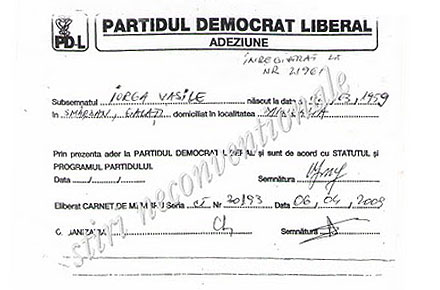 PD-L
PARTIDUL DEMOCRAT LIBERAL
ADEZIUNE
ÎNREGISTRAT LA
NR 2196/
Subsemnatul IORGA VASILE născut la dat 03, 1959
în SMÂRDAN, GALAȚI domiciliat în localitatea
Prin prezenta ader la PARTIDUL DEMOCRAT LIBERAL și sunt de acord cu STATUTUL și
PROGRAMUL PARTIDULUI
Data / / Semnătura
Eliberat CARNET DE MEMBRU Seria CT Nr 20193 Data 06, 04, 2009
ORGANIZAȚIA Semnătura
stiri neconventionale